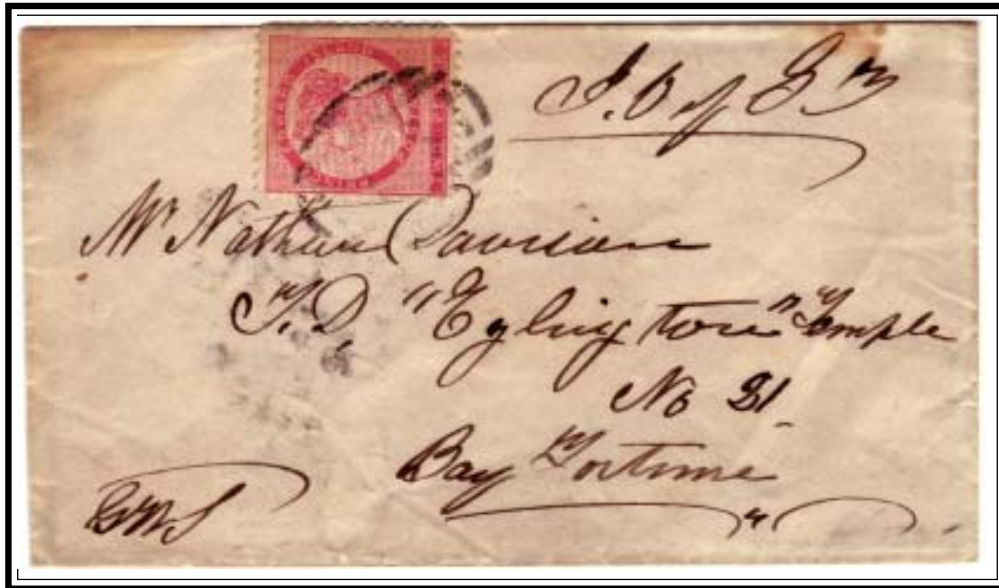 I. O of G T
Mr Nathan Davison
T. D. "Eglington" Temple
No
Bay Fortune